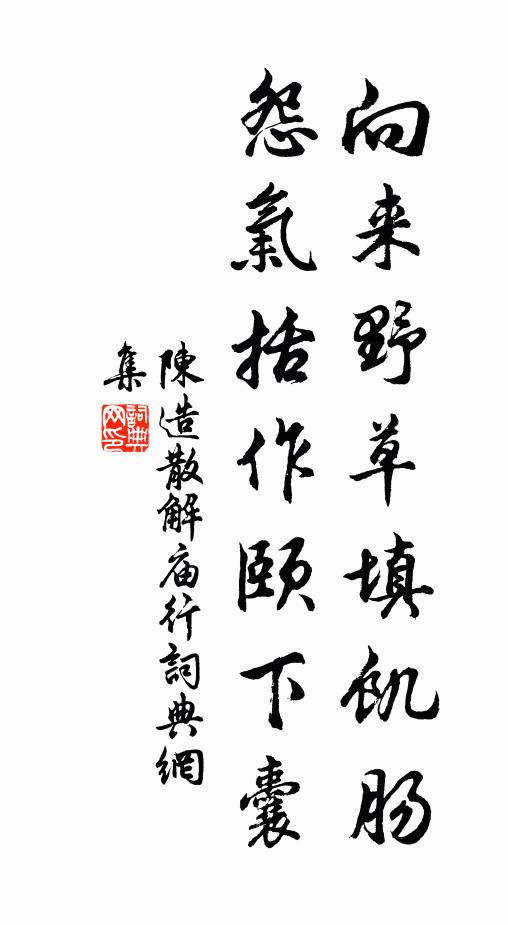 向来野草填飢肠
怨氣括作頤下囊
陳造散解庙行詞典網
集
詞典网印